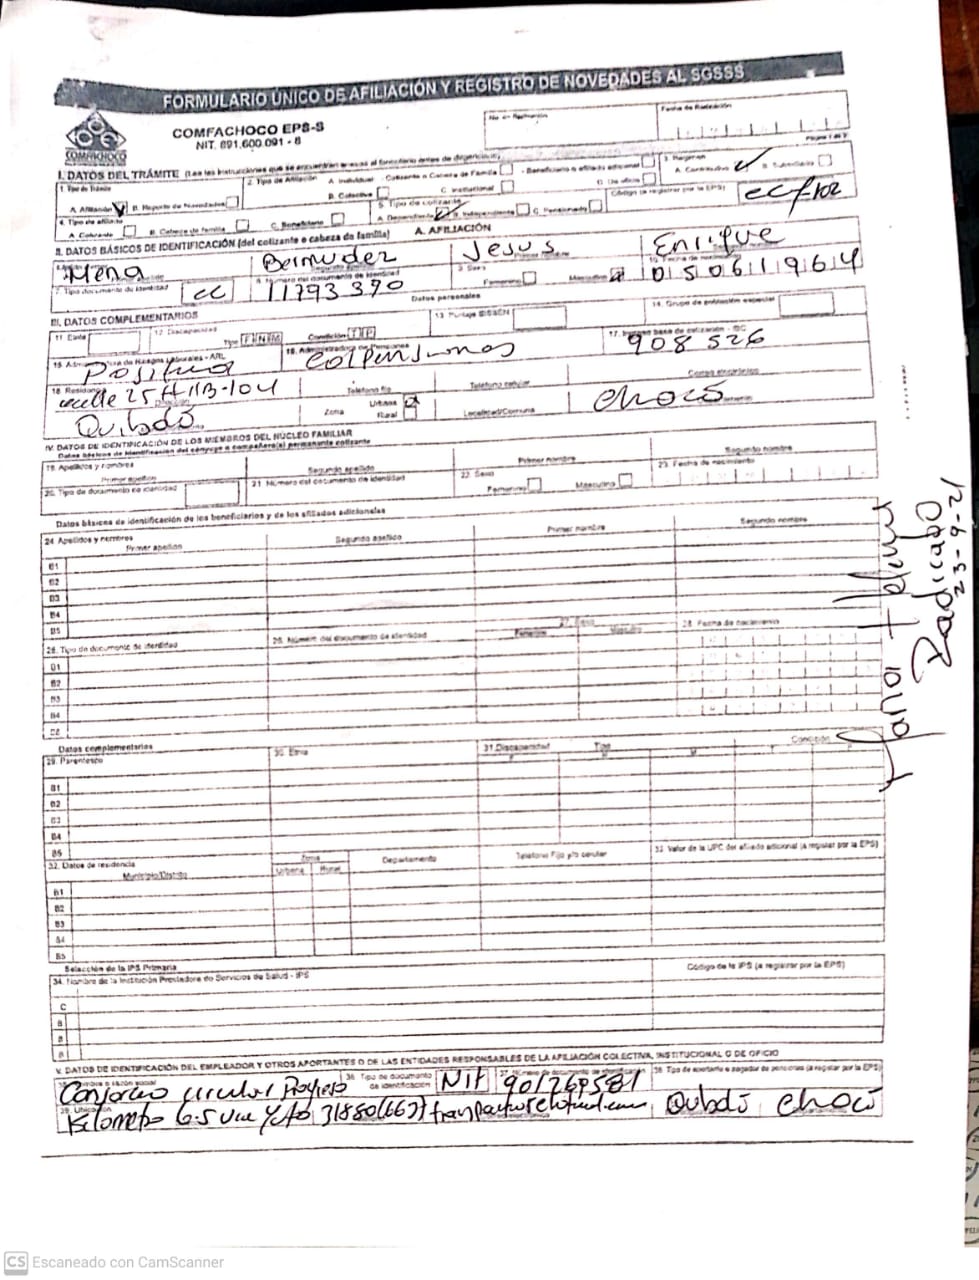 FORMULARIO ÚNICO DE AFILIACIÓN Y REGISTRO DE NOVEDADES AL SGSSS
COMFACHOCO
COMFACHOCO EPS-S
NIT. 891.600.091 - 8
No. de Radicación
Fecha de Radicación
I. DATOS DEL TRÁMITE
1. Tipo de Trámite
A. Afiliación
B. Reporte de Novedades
2. Tipo de Afiliación
A. Individual
Cotizante o Cabeza de Familia
Beneficiario o afiliado adicional
B. Colectiva
C. Institucional
D. De oficio
3. Régimen
A. Contributivo
B. Subsidiado
4. Tipo de afiliado
A. Cotizante
B. Cabeza de familia
C. Beneficiario
5. Tipo de cotizante
A. Dependiente
B. Independiente
C. Pensionado
Código (a registrar por la EPS)
CCF102
A. AFILIACIÓN
II. DATOS BÁSICOS DE IDENTIFICACIÓN (del cotizante o cabeza de familia)
Mena Bermudez Jesus Enrique
7. Tipo documento de identidad
CC
8. Número del documento de identidad
11793390
9. Sexo
Femenino
Masculino
10. Fecha de nacimiento
05061964
Datos personales
III. DATOS COMPLEMENTARIOS
11. Etnia
12. Discapacidad
Tipo F N M
Condición T P
13. Puntaje SISBÉN
14. Grupo de población especial
15. Administradora de Riesgos Laborales - ARL
Positiva
16. Administradora de Pensiones
Colpensiones
17. Ingreso base de cotización - IBC
908526
18. Residencia
calle 25 # 11B-104
Dirección
Teléfono fijo
Teléfono celular
Correo electrónico
Quibdó
Zona
Urbana
Rural
Localidad/Comuna
Chocó
IV. DATOS DE IDENTIFICACIÓN DE LOS MIEMBROS DEL NÚCLEO FAMILIAR
Datos básicos de identificación del cónyuge o compañero(a) permanente cotizante
19. Apellidos y nombres
Primer apellido
Segundo apellido
Primer nombre
Segundo nombre
20. Tipo de documento de identidad
21. Número del documento de identidad
22. Sexo
Femenino
Masculino
23. Fecha de nacimiento
Datos básicos de identificación de los beneficiarios y de los afiliados adicionales
24. Apellidos y nombres
Primer apellido
Segundo apellido
Primer nombre
Segundo nombre
B1
B2
B3
B4
B5
25. Tipo de documento de identidad
26. Número del documento de identidad
27. Sexo
Femenino
Masculino
28. Fecha de nacimiento
B1
B2
B3
B4
Radicado
23-9-21
Datos complementarios
29. Parentesco
30. Etnia
31. Discapacidad
Tipo
Condición
B1
B2
B3
B4
B5
32. Datos de residencia
Municipio/Distrito
Zona
Urbana
Rural
Departamento
Teléfono Fijo y/o celular
33. Valor de la UPC del afiliado adicional (a registrar por la EPS)
B1
B2
B3
B4
B5
Selección de la IPS Primaria
34. Nombre de la Institución Prestadora de Servicios de Salud - IPS
Código de la IPS (a registrar por la EPS)
C
B
B
B
V. DATOS DE IDENTIFICACIÓN DEL EMPLEADOR Y OTROS APORTANTES O DE LAS ENTIDADES RESPONSABLES DE LA AFILIACIÓN COLECTIVA, INSTITUCIONAL O DE OFICIO
36. Tipo de documento de identificación
NIT
901269581
38. Tipo de aportante o pagador de pensiones (a registrar por la EPS)
39. Ubicación
Kilometro 6.5 via
Quibdó Chocó
CS Escaneado con CamScanner